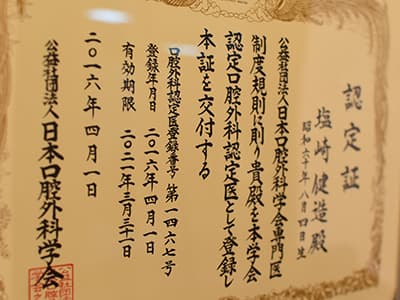 認定証
塩崎健造殿
昭和六十年八月四日生
公益社団法人日本口腔外科学会専門医
制度規則に則り貴殿を本学会
認定口腔外科認定医として登録し
本証を交付する
口腔外科認定医登録番号 第一四六七号
登録年月日 二〇一六年四月一日
有効期限 二〇二一年三月三十一日
二〇一六年四月一日
公益社団法人日本口腔外科学会